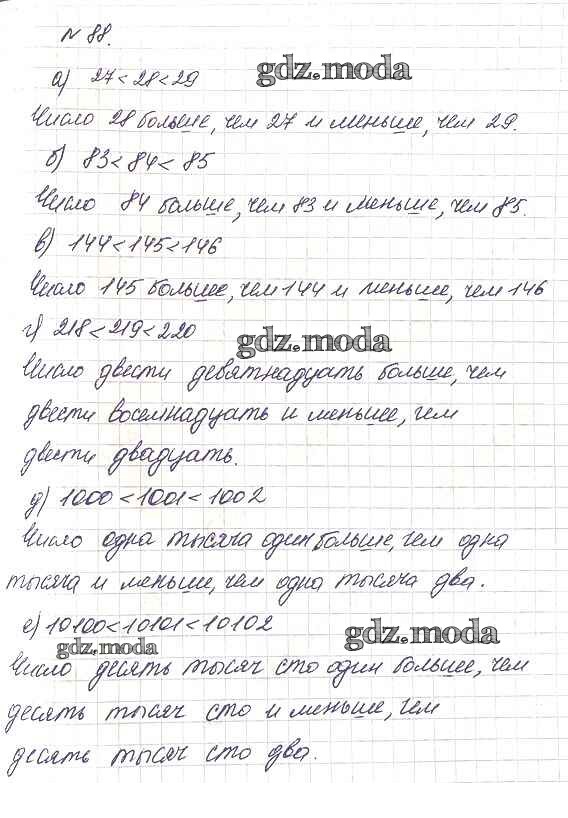 № 88.
а) 27 < 28 < 29
gdz.moda
Число 28 больше, чем 27 и меньше, чем 29.
б) 83 < 84 < 85
Число 84 больше, чем 83 и меньше, чем 85.
в) 144 < 145 < 146
Число 145 больше, чем 144 и меньше, чем 146
г) 218 < 219 < 220
gdz.moda
Число двести девятнадцать больше, чем
двести восемнадцать и меньше, чем
двести двадцать.
д) 1000 < 1001 < 1002
Число одна тысяча один больше, чем одна
тысяча и меньше, чем одна тысяча два.
е) 10100 < 10101 < 10102
gdz.moda
gdz.moda
Число десять тысяч сто один больше, чем
десять тысяч сто и меньше, чем
десять тысяч сто два.